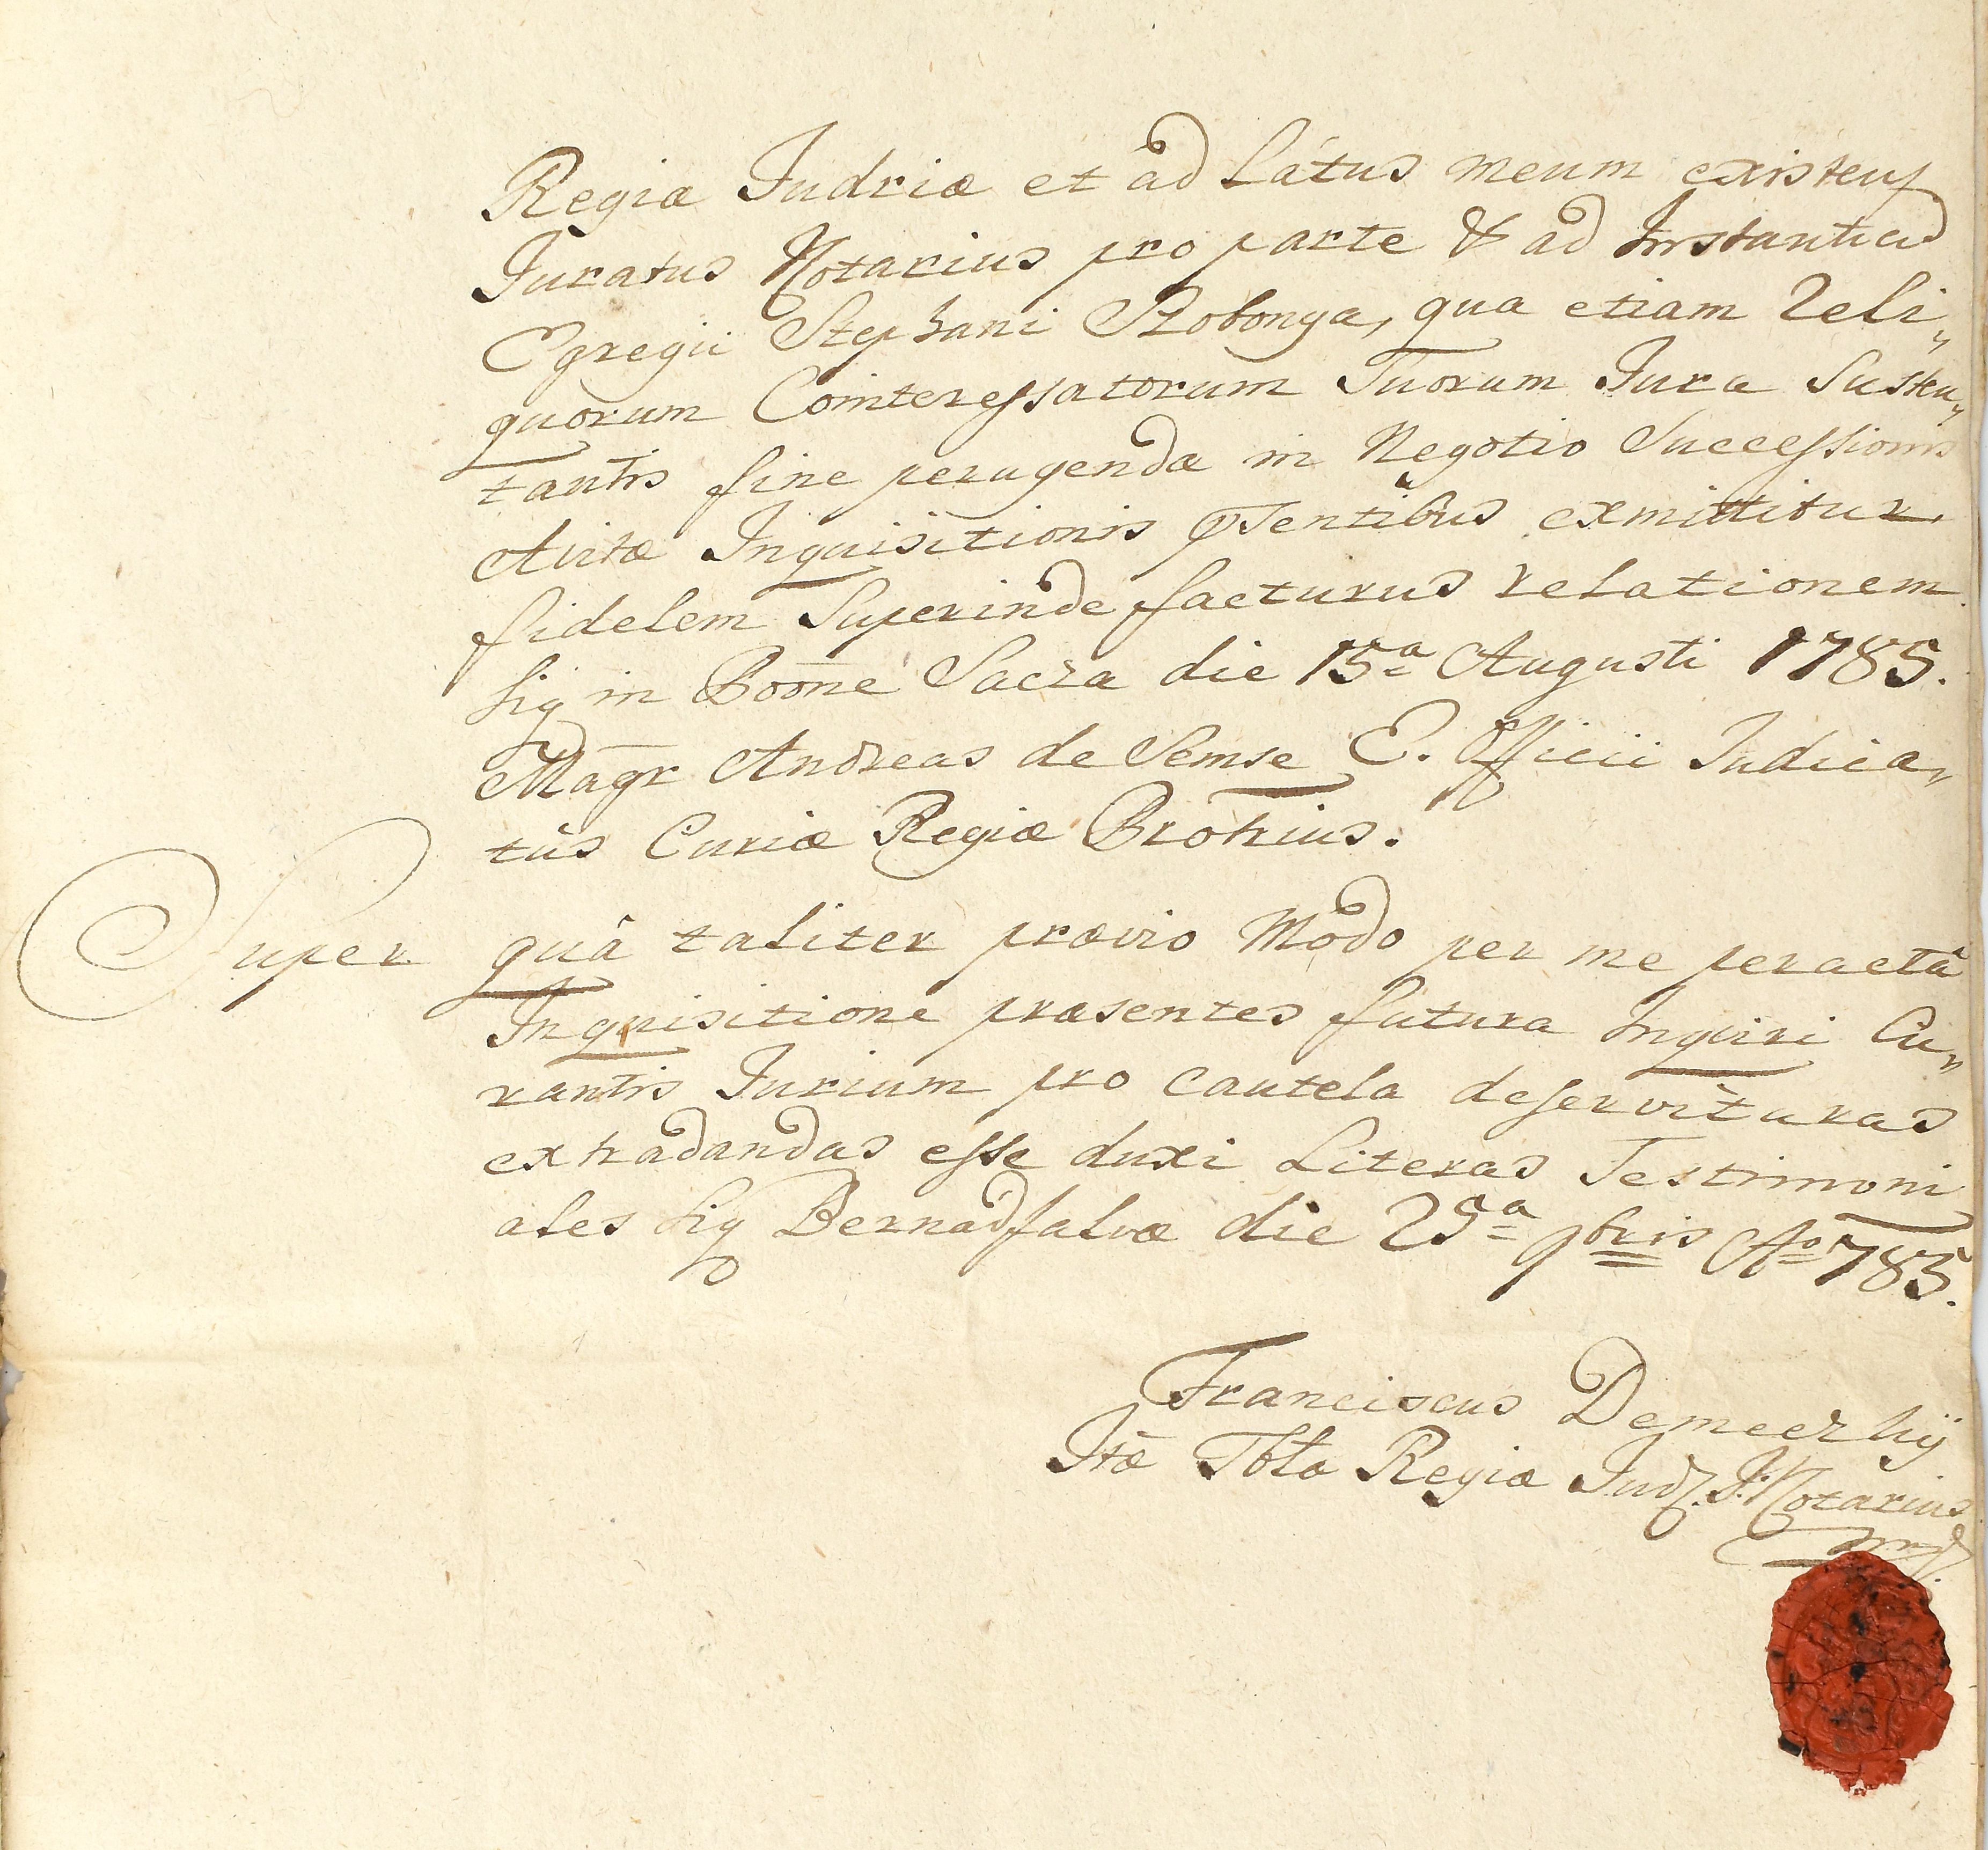 Regiæ Judriæ et ad Látus meum existens
Juratus Notarius pro parte & ad Instantiad
Egregii Stephani Szobonya, qua etiam Reli„
quorum Cointeressatorum Suorum Jura Susten„
tantis fine peragendæ in Negotio Successionis
Avitæ Inquisitionis pnsentibus exmittitur,
fidelem Superinde facturus relationem.
Sig in Boone Sacra die 15ª Augusti 1785.
Magr Andreas de Semse E. Officii Judica„
tûs Curiæ Regiæ Prothius.
Super quâ taliter prævio Modo per me peractâ
Inquisitione præsentes futura Inquiri Cu„
rantis Jurium pro cautela deservituras
extradandas esse duxi Literas Testimoni
ales Sig Bernadfalvæ die 25ª 9bris Ao 785.
Franciscus Demeczkÿ
Itæ Tblæ Regiæ Jud. J. Notarius
mp.